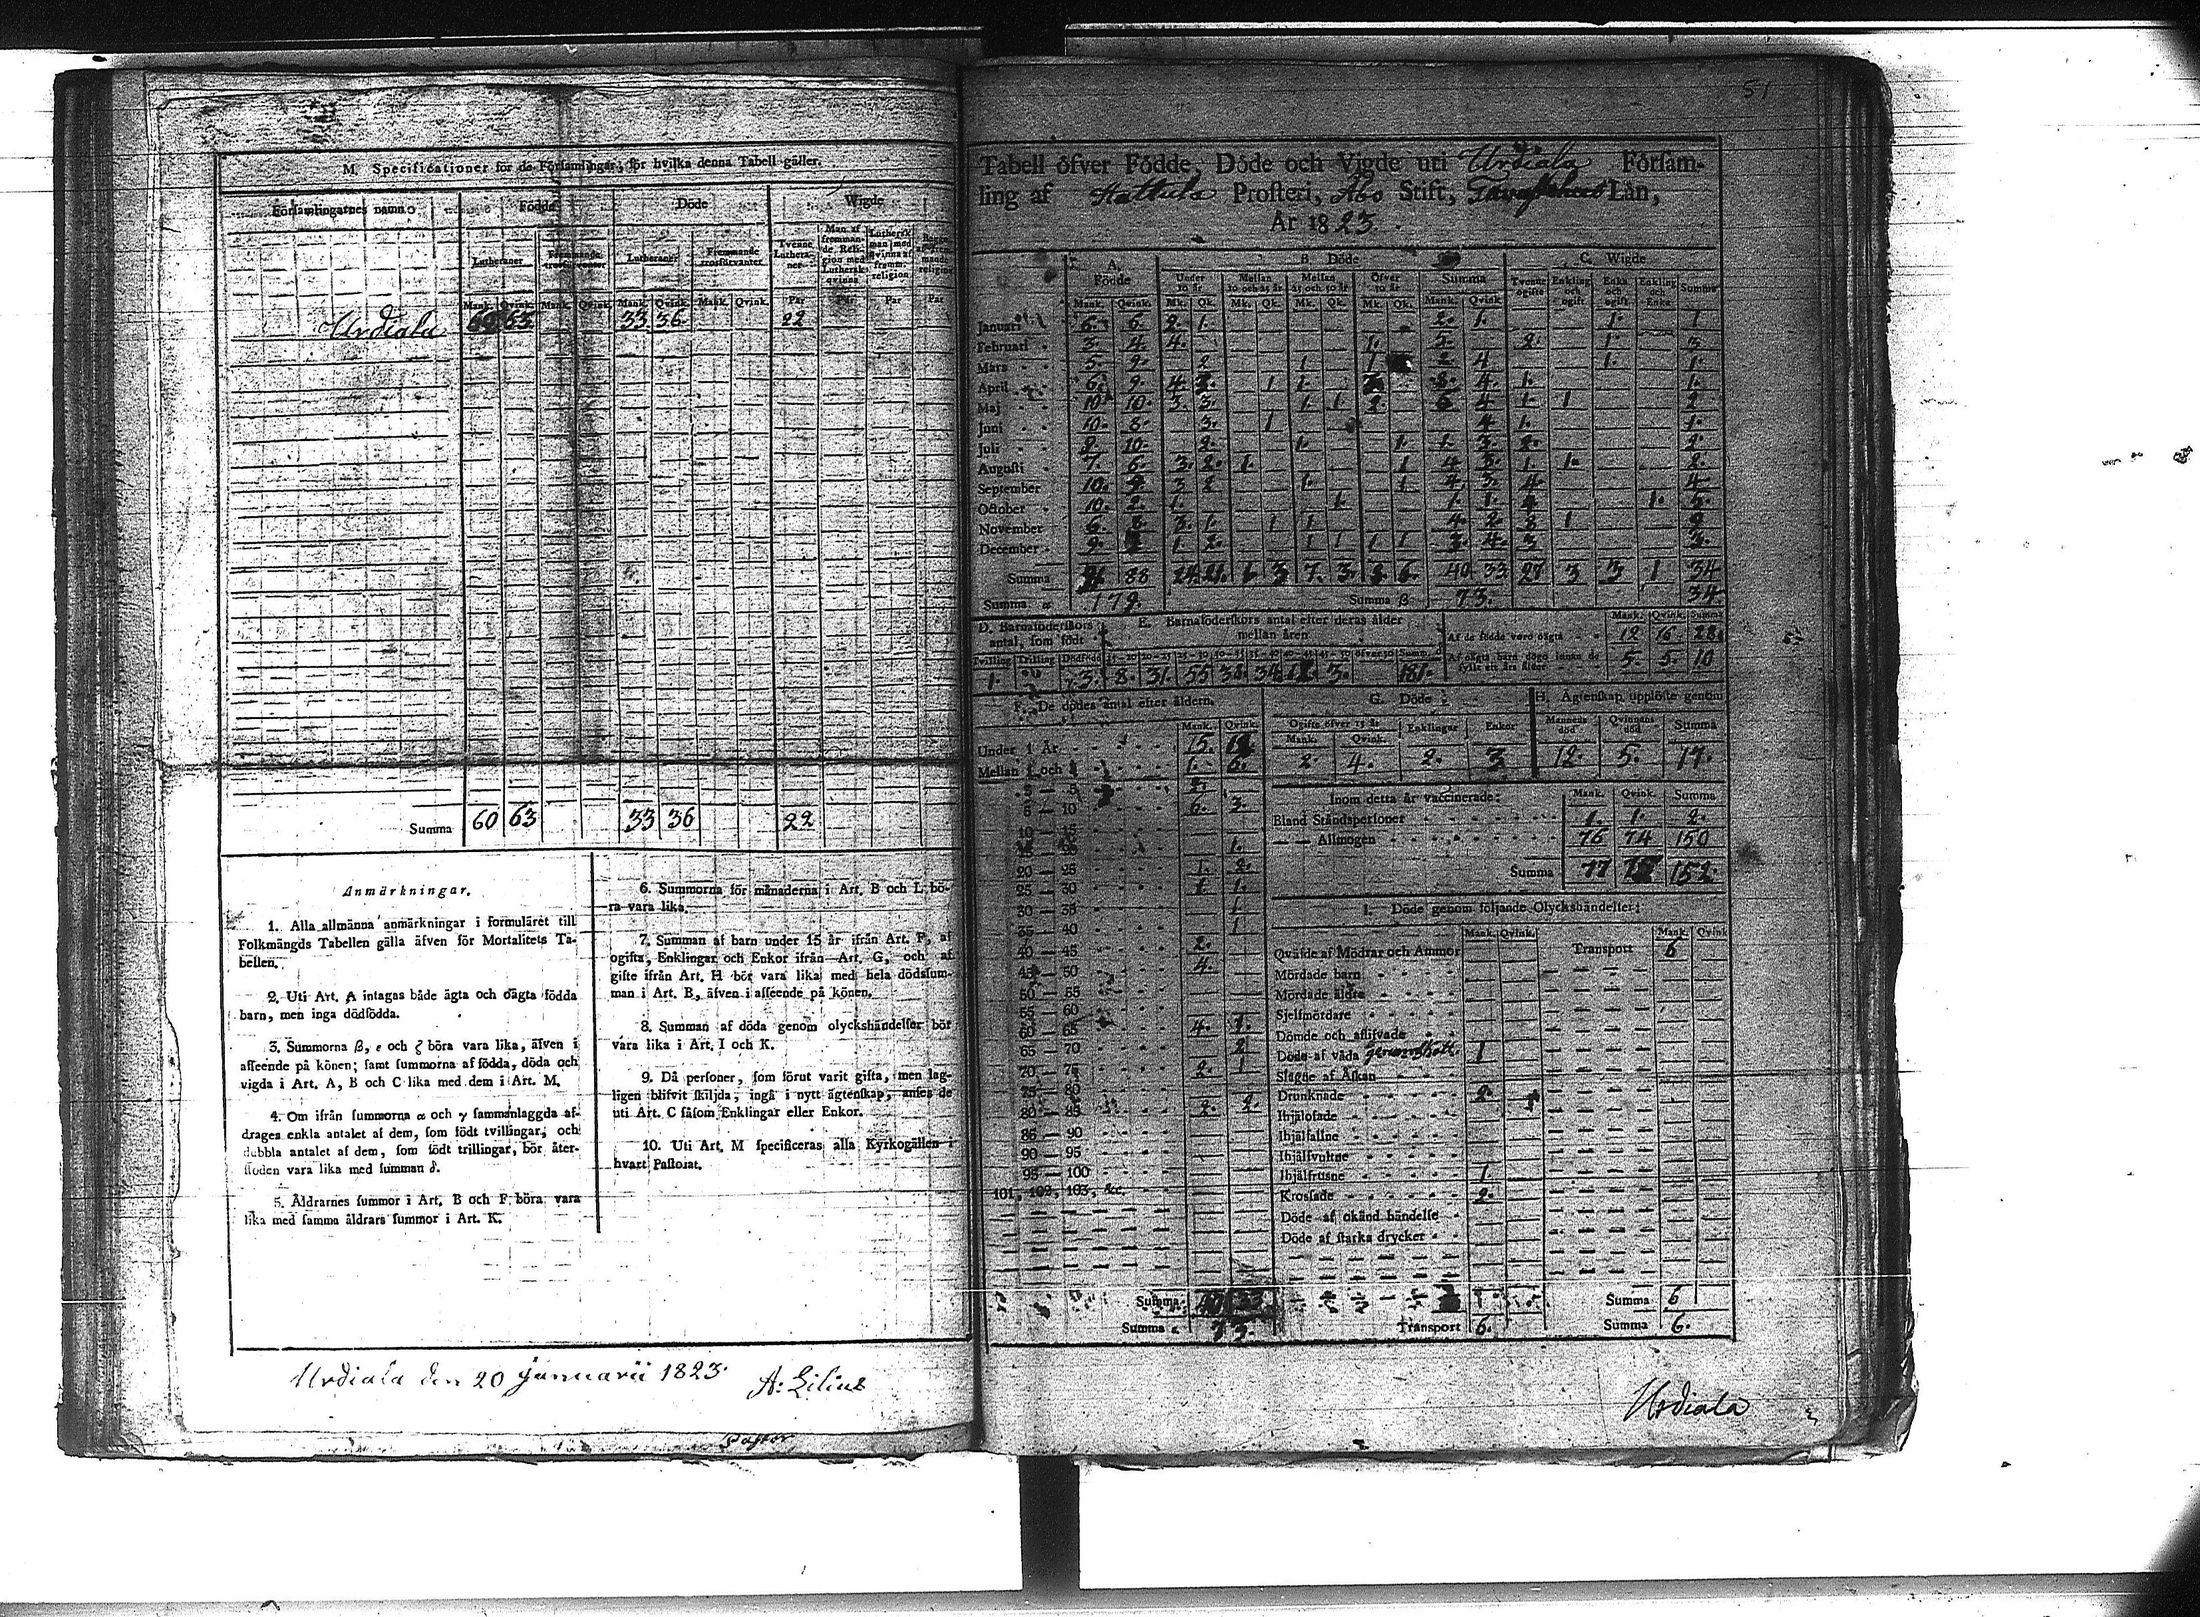 M. Specificationer för de Församlingar, för hvilka denna Tabell gäller.
Församlingarnes namn. Födde Döde Wigde
Lutheraner Fremmande trosförvanter Lutheraner Fremmande trosförvanter Tvenne Lutheraner Man af fremmande Religion med Luthersk qvinna Luthersk man med qvinna af fremm. religion
Mank. Qvink. Mank. Qvink. Mank. Qvink. Mank. Qvink. Par Par Par Par
Urdiala 60 63 33 36 22
Summa 60 63 33 36 22
Anmärkningar.
1. Alla allmänna anmärkningar i formuläret till
Folkmängds Tabellen gälla äfven för Mortalitets Ta-
bellen.
2. Uti Art. A intagas både ägta och oägta födda
barn, men inga dödfödda.
3. Summorna β, ε och ζ böra vara lika, äfven i
afseende på könen; samt summorna af födda, döda och
vigda i Art. A, B och C lika med dem i Art. M.
4. Om ifrån summorna α och γ sammanlaggda af-
drages enkla antalet af dem, som födt tvillingar, och
dubbla antalet af dem, som födt trillingar, bör åter-
stoden vara lika med summan δ.
5. Åldrarnes summor i Art. B och F böra vara
lika med samma åldrars summor i Art. K.
6. Summorna för månaderna i Art. B och L bö-
ra vara lika.
7. Summan af barn under 15 år ifrån Art. F, af
ogifta, Enklingar och Enkor ifrån Art. G, och af
gifte ifrån Art. H bör vara lika med hela dödssum-
man i Art. B, äfven i afseende på könen.
8. Summan af döda genom olyckshändelser bör
vara lika i Art. I och K.
9. Då personer, som förut varit gifta, men lag-
ligen blifvit skiljda, ingå i nytt ägtenskap, anses de
uti Art. C såsom Enklingar eller Enkor.
10. Uti Art. M specificeras alla Kyrkogällen i
hvart Pastorat.
Urdiala den 20 Januarii 1823. A: Lilius
Pastor
51
Tabell öfver Födde, Döde och Vigde uti Urdiala Försam-
ling af Hattula Prosteri, Åbo Stift, Tavastehus Län,
År 1823.
A. Födde B Döde C. Wigde
Under 10 år Mellan 10 och 25 år Mellan 25 och 50 år Öfver 50 år Summa Tvenne ogifte Enkling och ogift Enka och ogift Enkling och Enka Summa
Mank. Qvink. Mk. Qk. Mk. Qk. Mk. Qk. Mk. Qk. Mank. Qvink.
Januari 6. 6. 2. 1. 2. 1. 1. 1
Februari 3. 4 4. 1. 5. 2. 1. 3
Mars 5. 9. 2 1 1 2 4 1. 1.
April 6. 9. 4. 1 1. 4. 1. 1.
Maj 10. 10. 3. 3. 1. 1. 2. 6 4 1. 1 2
Juni 10. 8. 3. 1 4 1. 1.
Juli 10. 2. 1. 1. 1. 3. 2. 2.
Augusti 7. 6. 3. 2. 1. 1 4 3. 1. 1. 2.
September 10. 3 2 1. 1 4. 3. 4 4
October 10. 2. 1. 1. 1. 1. 4 1. 5.
November 6. 8. 3. 1. 1 1 4. 2. 8 1 9
December 9. 1. 2. 1 1 1 1 3. 4. 3 3.
Summa 91 88 24. 21. 1. 3 7. 3. 8. 6. 40. 33. 27 3 3 1 34
Summa α 179. Summa β 73. 34.
D. Barnaföderskors antal, som födt
E. Barnaföderskors antal efter deras ålder mellan åren
Tvilling Trilling Dödfödd
1. 3. 8. 31. 55 38. 34. 3. 181.
Mank. Qvink. Summa
Af de födde voro oägta 12 16. 28.
Af oägta barn dogo innan de fyllt ett års ålder 5. 5. 10
F. De dödas antal efter åldern.
Mank. Qvink.
Under 1 År 15. 12.
Mellan 1 och 3 1. 6.
3 — 5 2.
5 — 10 6. 3.
10 — 15
15 — 20 1.
20 — 25 1. 2.
25 — 30 1 1.
30 — 35 1
35 — 40 1
40 — 45 2.
45 — 50 4.
50 — 55
55 — 60
60 — 65 4. 1.
65 — 70 2
70 — 75 2. 1
75 — 80
80 — 85 2. 2.
85 — 90
90 — 95
95 — 100
101, 102, 103, &c.
Summa
Summa ε 73.
G. Döde
Ogifte öfver 15 år Enklingar Enkor
Mank. Qvink.
2. 4. 2. 3
H. Ägtenskap upplöste genom
Mannens död Qvinnans död Summa
12. 5. 17.
Inom detta år vaccinerade: Mank. Qvink. Summa
Bland Ståndspersoner 1. 1. 2.
— — Allmogen 76 74 150
Summa 77 75 152.
I. Döde genom följande Olyckshändelser:
Mank. Qvink. Mank. Qvink
Qväfde af Mödrar och Ammor Transport 6
Mördade barn
Mördade äldre
Sjelfmördare
Dömde och aflifvade
Döde af våda genom skott. 1
Slagne af Åskan
Drunknade 2.
Ihjälofade
Ihjälfallne
Ihjälsvultne
Ihjälfrusne 1.
Krossade 2.
Döde af okänd händelse
Döde af starka drycker
Summa 6
Transport 6. Summa 6.
Urdiala